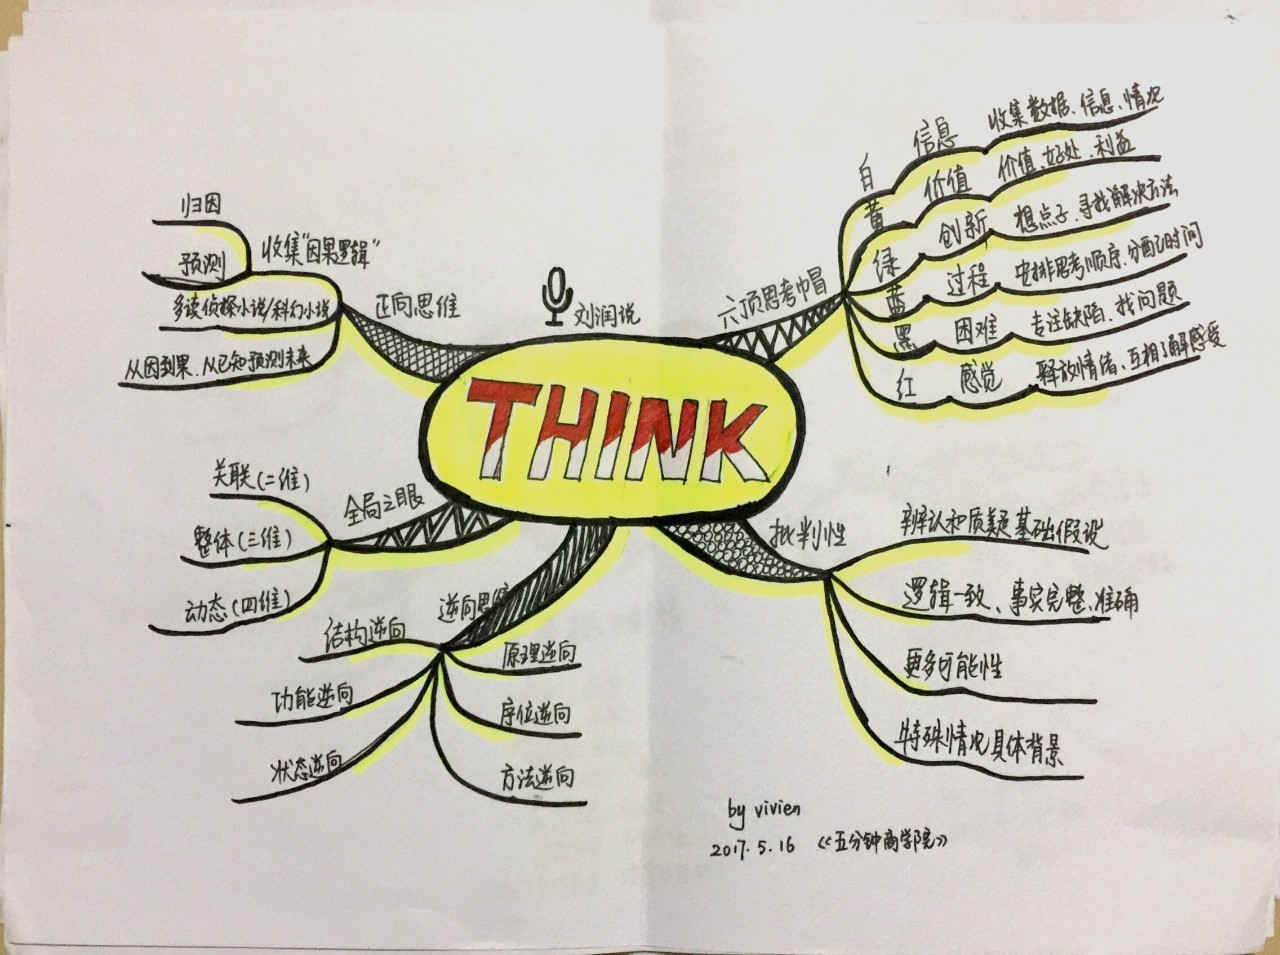 THINK
刘润说
六顶思考帽
白 信息 收集数据、信息、情况
黄 价值 价值、好处、利益
绿 创新 想点子、寻找解决方法
蓝 过程 安排思考顺序、分配时间
黑 困难 专注缺陷、找问题
红 感觉 释放情绪、互相了解感受
批判性
辨认和质疑基础假设
逻辑一致、事实完整、准确
更多可能性
特殊情况具体背景
正向思维
收集"因果逻辑"
归因
预测
多读侦探小说/科幻小说
从因到果、从已知预测未来
全局之眼
关联(二维)
整体(三维)
动态(四维)
逆向思维
结构逆向
功能逆向
状态逆向
原理逆向
序位逆向
方法逆向
by vivien
2017.5.16 《五分钟商学院》